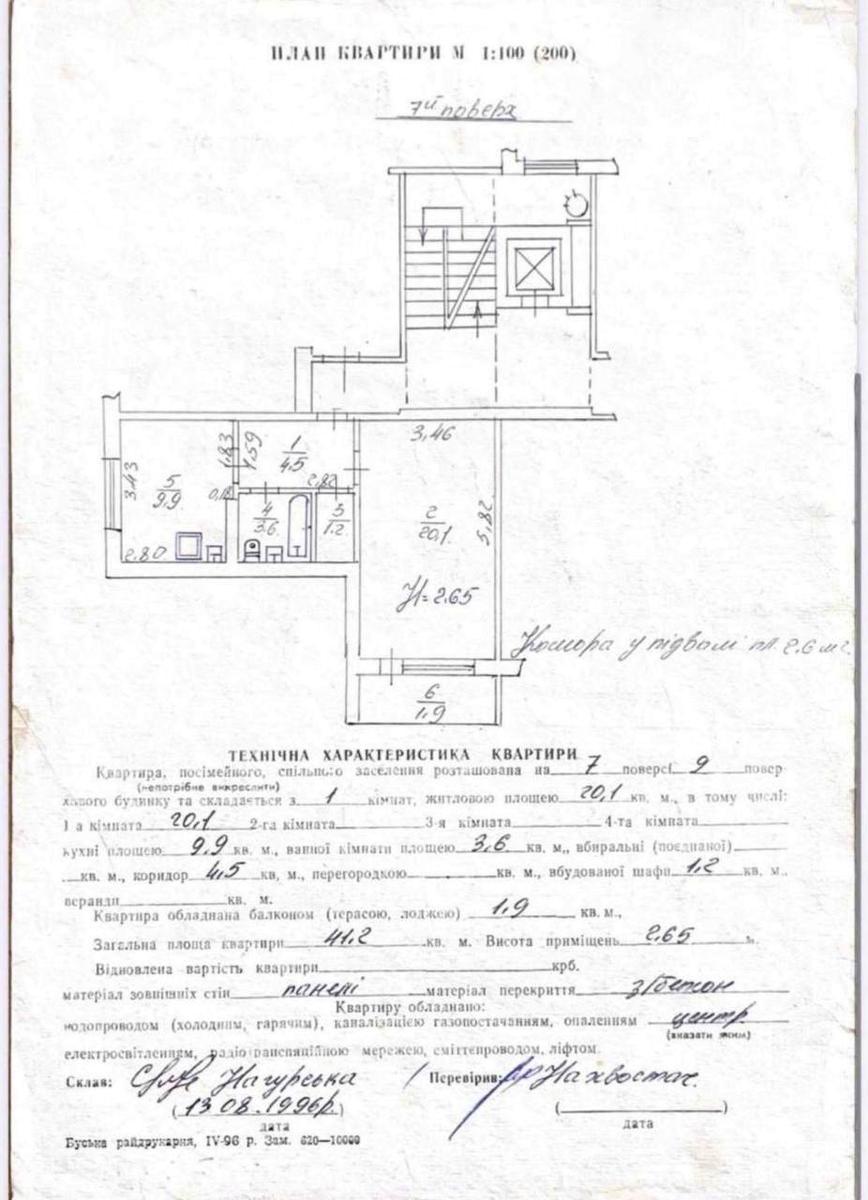 ПЛАН КВАРТИРИ М 1:100 (200)
7й поверх
3,46
3,43
1,83
1,59
1
4,5
2,82
5
9,9
4
3,6
3
1,2
2
20,1
5,82
2,80
H=2.65
Комора у підвалі пл. 2.6 м²
6
1,9
ТЕХНІЧНА ХАРАКТЕРИСТИКА КВАРТИРИ
Квартира, посімейного, спільного заселення розташована на 7 поверсі 9 повер-
(непотрібне викреслити)
хового будинку та складається з 1 кімнат, житловою площею 20,1 кв. м., в тому числі:
1-а кімната 20,1 2-га кімната 3-я кімната 4-та кімната
кухні площею 9.9 кв. м., ванної кімнати площею 3,6 кв. м., вбиральні (поєднаної)
кв. м., коридор 4,5 кв. м., перегородкою кв. м., вбудованої шафи 1,2 кв. м.,
веранди кв. м.
Квартира обладнана балконом (терасою, лоджею) 1,9 кв. м.,
Загальна площа квартири 41.2 кв. м. Висота приміщень 2.65 м.
Відновлена вартість квартири крб.
матеріал зовнішніх стін панелі матеріал перекриття з/бетон
Квартиру обладнано:
водопроводом (холодним, гарячим), каналізацією газопостачанням, опаленням центр
(вказати яким)
електросвітленням, радіотрансляційною мережею, сміттєпроводом, ліфтом.
Склав: Нагурська / Перевірив: Нахвостач.
(13.08.1996р.) ( )
дата дата
Буська райдрукарня, IV-96 р. Зам. 620—10000